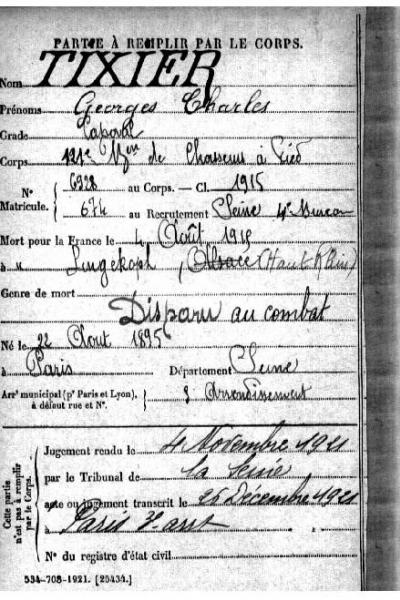 PARTIE À REMPLIR PAR LE CORPS.
Nom TIXIER
Prénoms Georges Charles
Grade Caporal
Corps 121e Bon de Chasseurs à Pied
N° Matricule. { 6928 au Corps. — Cl. 1915
674 au Recrutement Seine 4e Bureau
Mort pour la France le 4 Août 1915
à Lingekoph, Alsace (Haut Rhin)
Genre de mort
Disparu au combat
Né le 22 Aout 1895
à Paris Département Seine
Arrt municipal (pr Paris et Lyon), à défaut rue et N°. } Arrondissement
Cette partie n'est pas à remplir par le Corps.
Jugement rendu le 4 Novembre 1921
par le Tribunal de la Seine
acte ou jugement transcrit le 25 Décembre 1921
à Paris 3e arrt
N° du registre d'état civil
534-708-1921. [26434.]